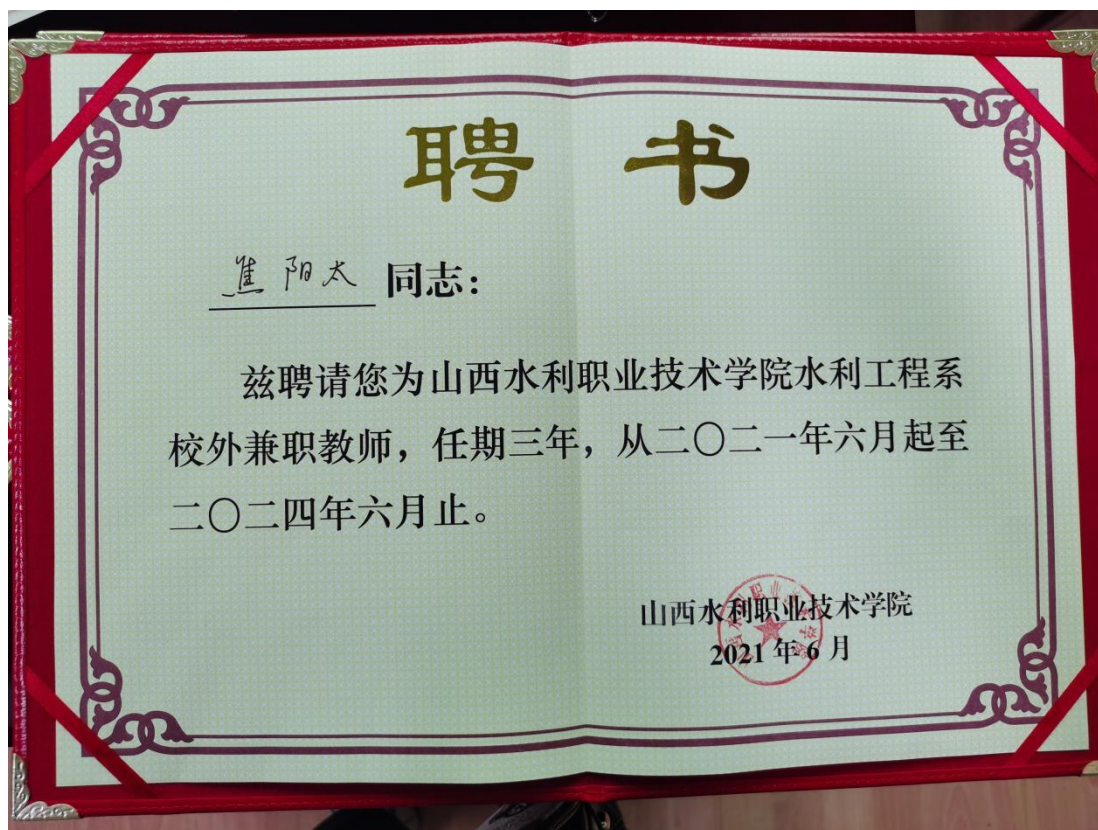 聘 书
焦阳太 同志：
兹聘请您为山西水利职业技术学院水利工程系
校外兼职教师，任期三年，从二〇二一年六月起至
二〇二四年六月止。
山西水利职业技术学院
2021年6月